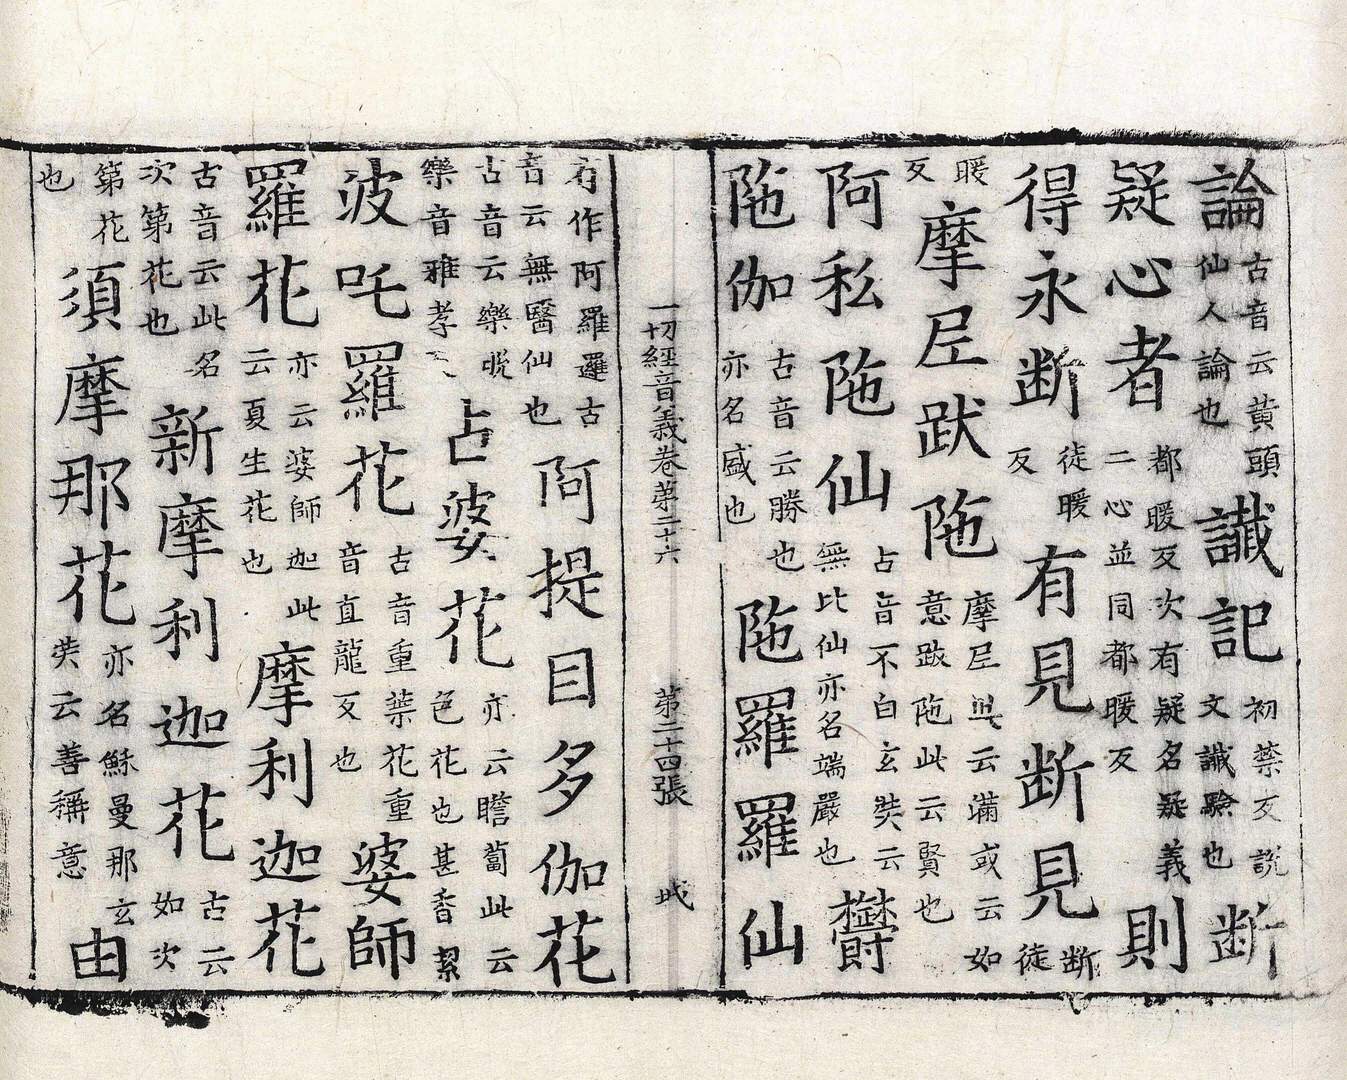 論古音云黃頭仙人論也讖記初禁反說文讖驗也斷
疑心者都暖反次有疑名疑義二心並同都暖反則
得永斷徒暖反有見斷見斷徒
暖反摩𡰱跋陁摩𡰱此云滿或云如意跋陁此云賢也
阿私陁仙古音不白玄奘云無比仙亦名端嚴也欝
陁伽古音云勝也亦名盛也陁羅羅仙
一切經音義卷第二十六 第二十四張 城
有作阿羅邏古音云無醫仙也阿提目多伽花
古音云樂脫樂音雅孝占婆花亦云瞻蔔此云色花也甚香潔
波吒羅花古音重葉花重音直龍反也婆師
羅花亦云婆師迦此云夏生花也摩利迦花
古音云此名次第花也新摩利迦花古云如次
第花也須摩那花亦名穌曼那玄奘云善稱意由